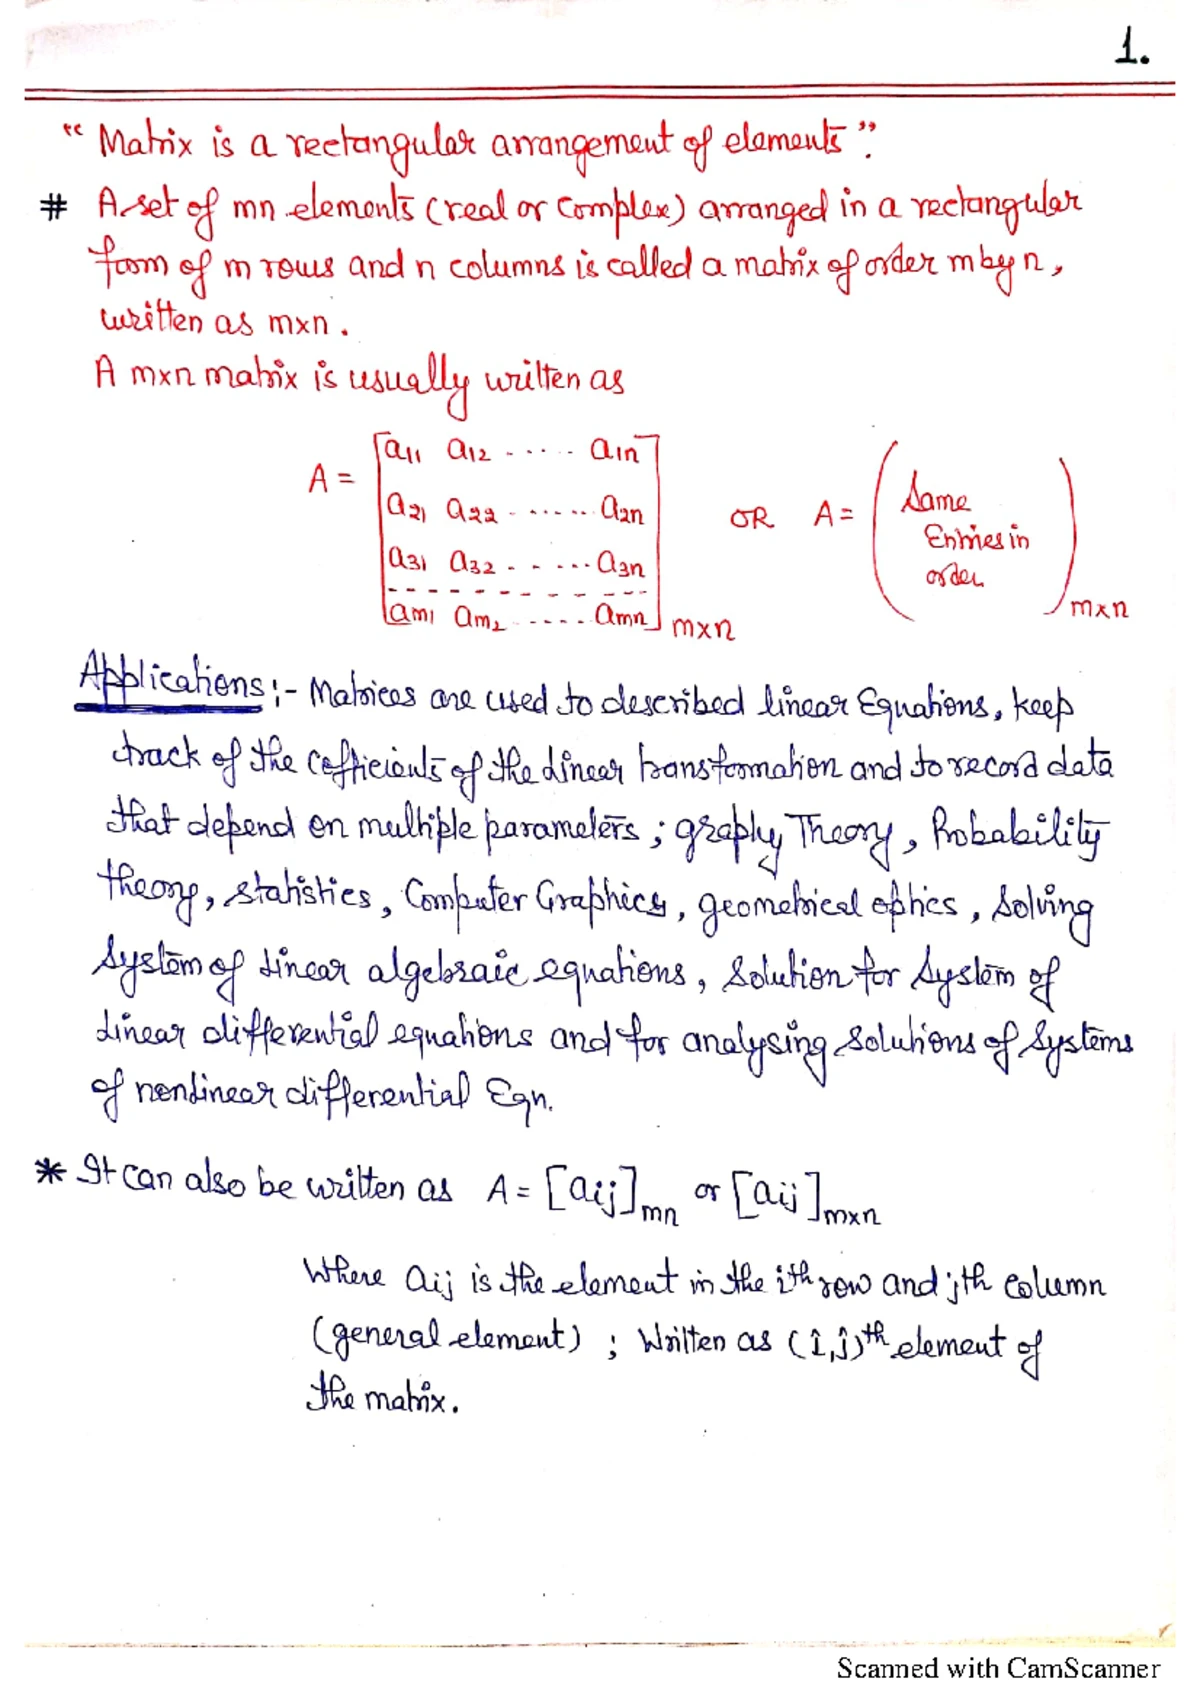 1.
“ Matrix is a rectangular arrangement of elements ”.
# A set of mn elements (real or complex) arranged in a rectangular
form of m rows and n columns is called a matrix of order m by n,
written as m×n.
A m×n matrix is usually written as
A = [a11 a12 ..... a1n
a21 a22 ...... a2n
a31 a32 ...... a3n
- - - - - - - - - - -
am1 am2 ..... amn] m×n OR A = ( Same Entries in order ) m×n
Applications :- Matrices are used to described linear Equations, keep
track of the cofficients of the linear transformation and to record data
that depend on multiple parameters ; graphy Theory, Probability
theory, statistics, Computer Graphics, geometrical optics, Solving
System of linear algebraic equations, Solution for System of
linear differential equations and for analysing solutions of Systems
of nonlinear differential Eqn.
* It can also be written as A = [aij]mn or [aij]m×n
Where aij is the element in the ith row and jth column
(general element) ; Written as (i,j)th element of
the matrix.
Scanned with CamScanner